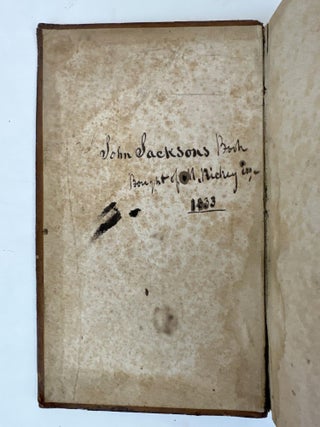 John Jacksons Book
Bought of M. Richey Esq
1833